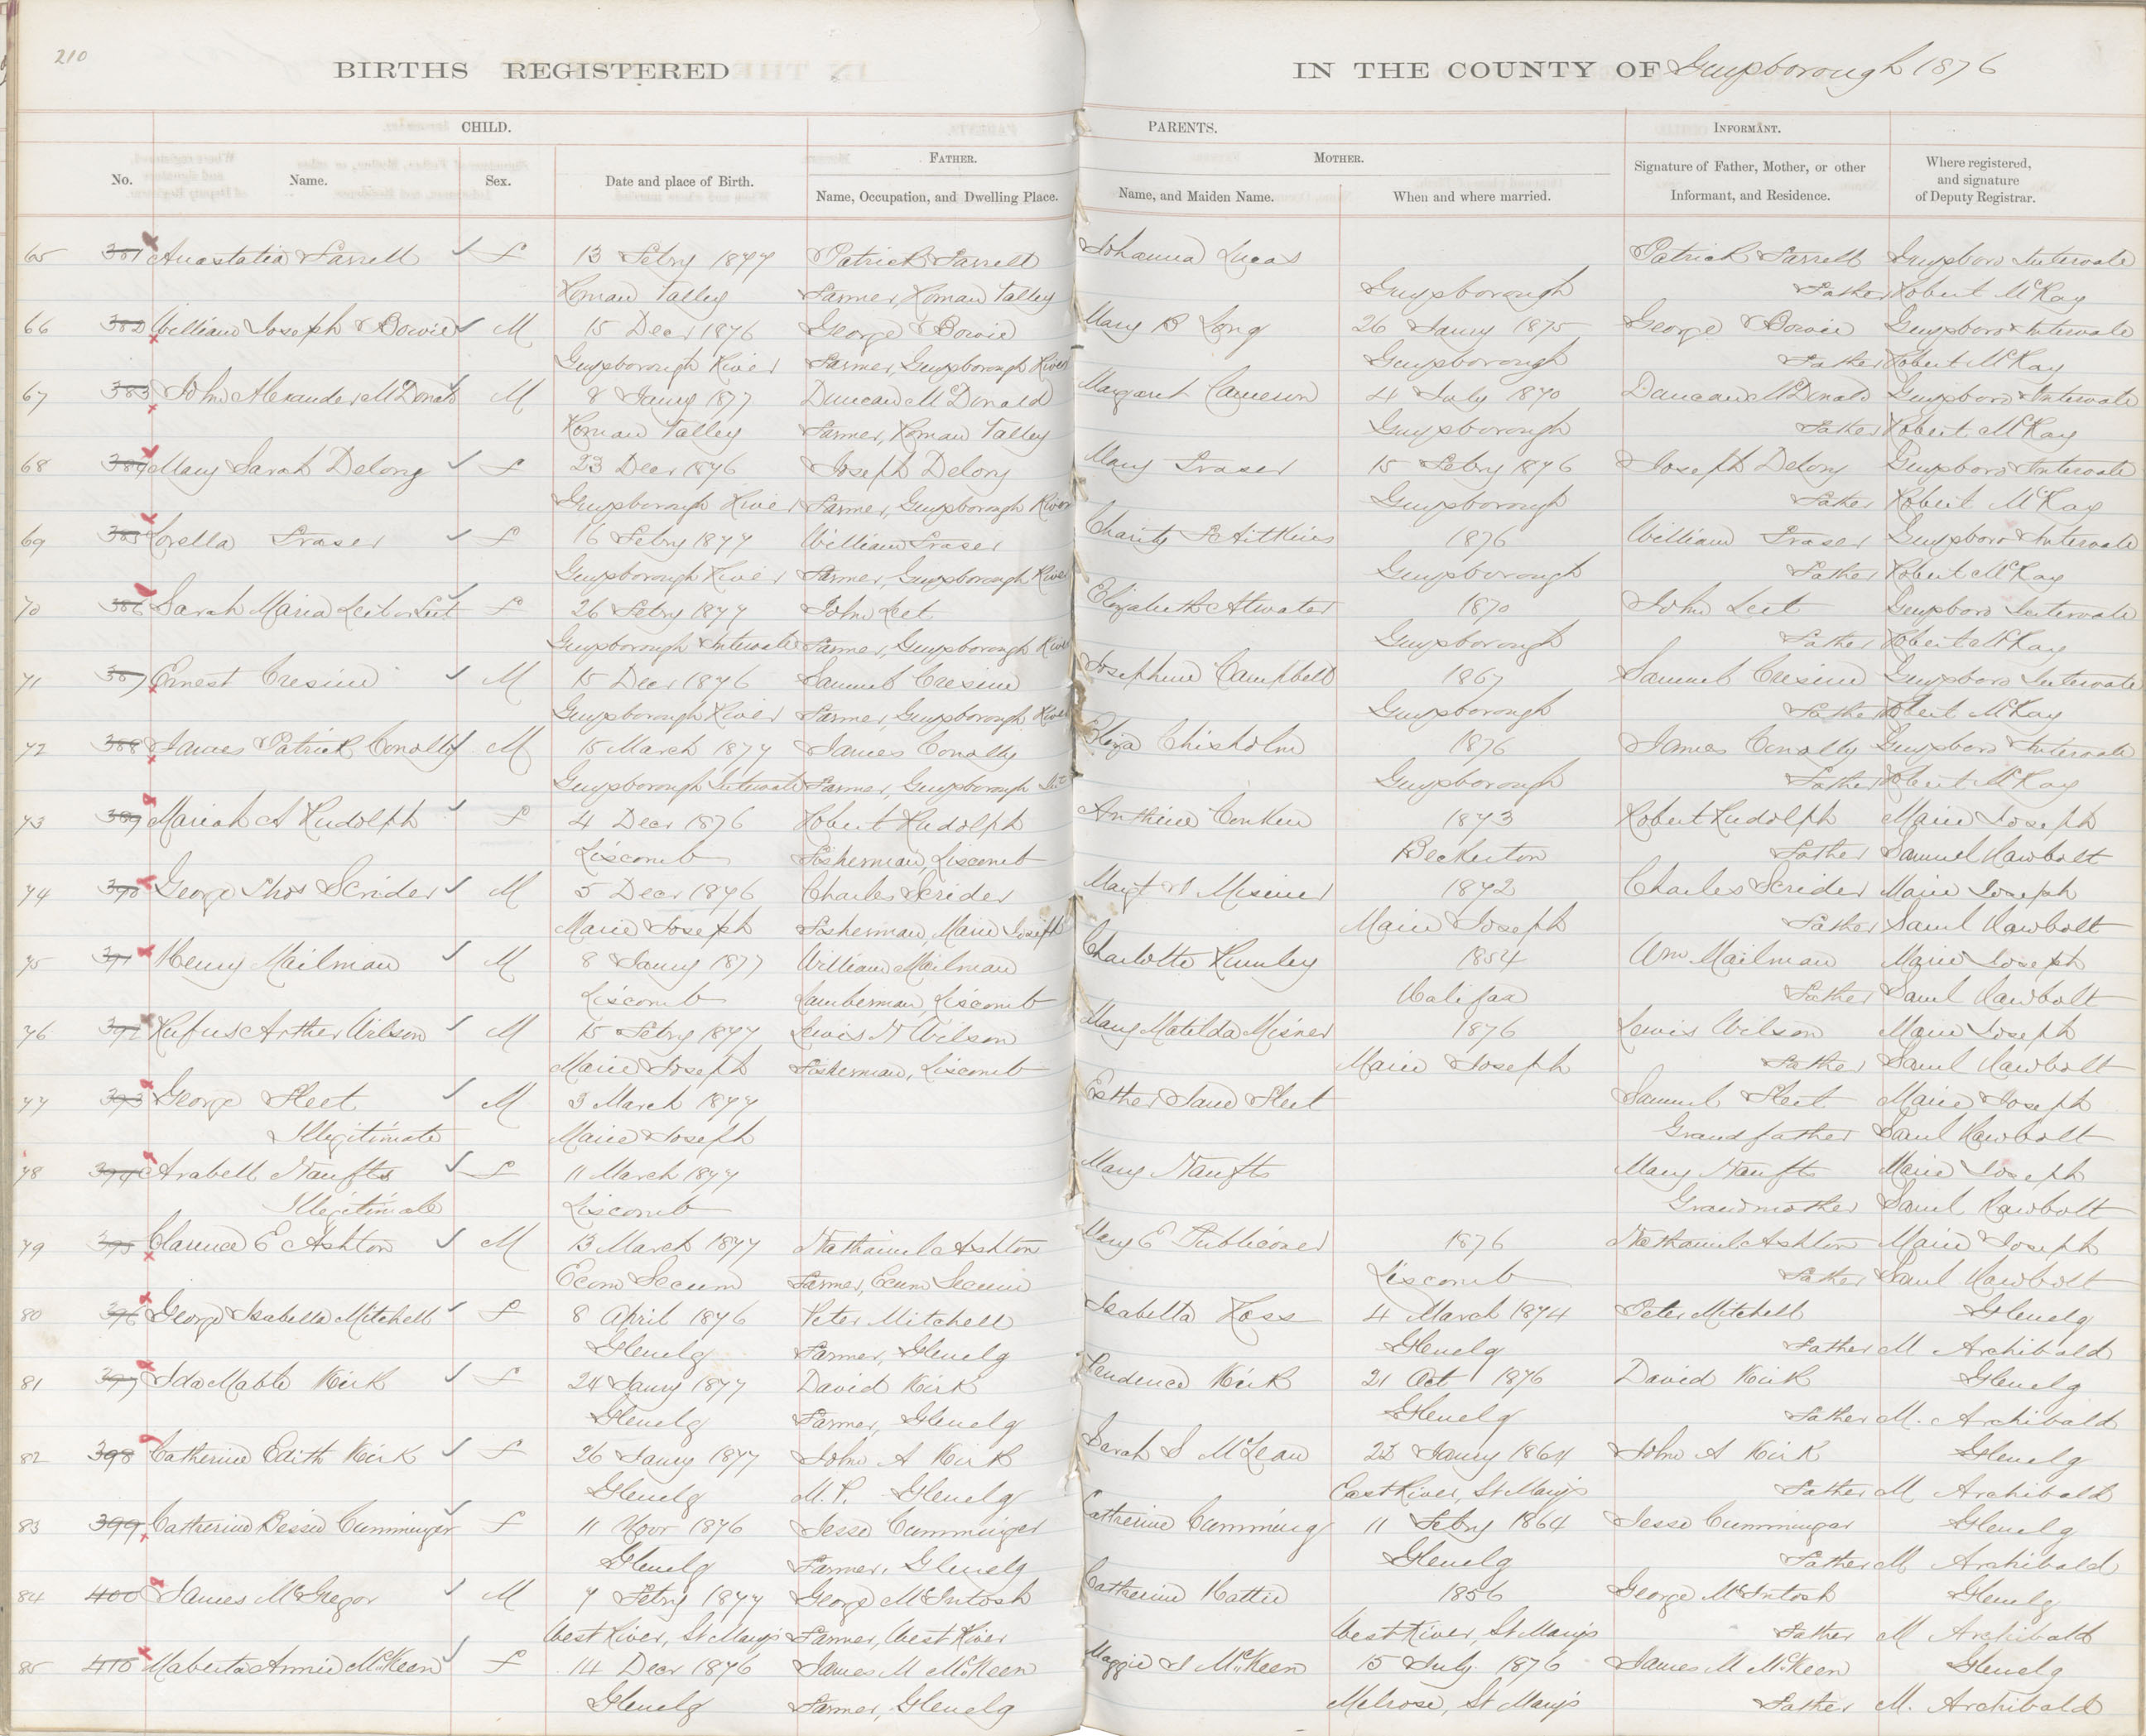 210
BIRTHS REGISTERED IN THE COUNTY OF Guysborough 1876
CHILD. PARENTS. INFORMANT.
FATHER. MOTHER.
No. Name. Sex. Date and place of Birth. Name, Occupation, and Dwelling Place. Name, and Maiden Name. When and where married. Signature of Father, Mother, or other Informant, and Residence. Where registered, and signature of Deputy Registrar.
65 381 Anastatia Farrell f 13 Febry 1877 Patrick Farrell Johanna Lucas Patrick Farrell Guysboro Intervale
Roman Valley Farmer, Roman Valley Guysborough Father Robert McKay
66 382 William Joseph Bowie M 15 Decr 1876 George Bowie Mary B Long 26 Jany 1875 George Bowie Guysboro Intervale
Guysborough River Farmer, Guysborough River Guysborough Father Robert McKay
67 383 John Alexander McDonald M 8 Jany 1877 Duncan McDonald Margaret Cameron 4 July 1870 Duncan McDonald Guysboro Intervale
Roman Valley Farmer, Roman Valley Guysborough Father Robert McKay
68 384 Mary Sarah Delong f 23 Decr 1876 Joseph Delong Mary Fraser 15 Febry 1876 Joseph Delong Guysboro Intervale
Guysborough River Farmer, Guysborough River Guysborough Father Robert McKay
69 385 Lorella Fraser f 16 Febry 1877 William Fraser Charity Aitkins 1876 William Fraser Guysboro Intervale
Guysborough River Farmer, Guysborough River Guysborough Father Robert McKay
70 386 Sarah Maria Leit or Leet f 26 Febry 1877 John Leet Elizabeth Atwater 1870 John Leet Guysboro Intervale
Guysborough Intervale Farmer, Guysborough River Guysborough Father Robert McKay
71 387 Ernest Cresine M 15 Decr 1876 Samuel Cresine Josephine Campbell 1867 Samuel Cresine Guysboro Intervale
Guysborough River Farmer, Guysborough River Guysborough Father Robert McKay
72 388 James Patrick Conolly M 15 March 1877 James Conolly Eliza Chisholm 1876 James Conolly Guysboro Intervale
Guysborough Intervale Farmer, Guysborough Guysborough Father Robert McKay
73 389 Mariah A Rudolph f 4 Decr 1876 Robert Rudolph Conken 1873 Robert Rudolph Marie Joseph
Liscomb Fisherman, Liscomb Beckerton Father Samuel Hawbolt
74 390 George Thos Scrider M 5 Decr 1876 Charles Scrider Margt Misener 1872 Charles Scrider Marie Joseph
Marie Joseph Fisherman, Marie Joseph Marie Joseph Father Saml Hawbolt
75 391 Henry Mailman M 8 Jany 1877 William Mailman Charlotte Rumley 1854 Wm Mailman Marie Joseph
Liscomb Lumberman, Liscomb Halifax Father Saml Hawbolt
76 392 Rufus Arther Wilson M 15 Febry 1877 Lewis N Wilson Mary Matilda Misner 1876 Lewis Wilson Marie Joseph
Marie Joseph Fisherman, Liscomb Marie Joseph Father Saml Hawbolt
77 393 George Fleet M 3 March 1877 Esther Jane Fleet Samuel Fleet Marie Joseph
Illegitimate Marie Joseph Grandfather Saml Hawbolt
78 394 Arabell Naufts f 11 March 1877 Mary Naufts Mary Naufts Marie Joseph
Illegitimate Liscomb Grandmother Saml Hawbolt
79 395 Clarence E Ashton M 13 March 1877 Nathaniel Ashton Mary E Publicover 1876 Nathaniel Ashton Marie Joseph
Ecum Secum Farmer, Ecum Secum Liscomb Father Saml Hawbolt
80 396 George Isabella Mitchell f 8 April 1876 Peter Mitchell Isabella Ross 4 March 1874 Peter Mitchell Glenelg
Glenelg Farmer, Glenelg Glenelg Father M Archibald
81 397 Ida Mable Kirk f 24 Jany 1877 David Kirk Prudence Kirk 21 Oct 1876 David Kirk Glenelg
Glenelg Farmer, Glenelg Glenelg Father M. Archibald
82 398 Catherine Edith Kirk f 26 Jany 1877 John A Kirk Sarah S McLean 22 Jany 1864 John A Kirk Glenelg
Glenelg M. P. Glenelg East River, St Marys Father M Archibald
83 399 Catherine Bessie Cumminger f 11 Novr 1876 Jesse Cumminger Catherine Cumming 11 Febry 1864 Jesse Cumminger Glenelg
Glenelg Farmer, Glenelg Glenelg Father M Archibald
84 400 James McGregor M 7 Febry 1877 George McIntosh Catherine Hattie 1856 George McIntosh Glenelg
West River, St Marys Farmer, West River West River, St Marys Father M Archibald
85 410 Maberta Annie McKeen f 14 Decr 1876 James M McKeen Maggie S McKeen 15 July 1876 James M McKeen Glenelg
Glenelg Farmer, Glenelg Melrose, St Marys Father M. Archibald